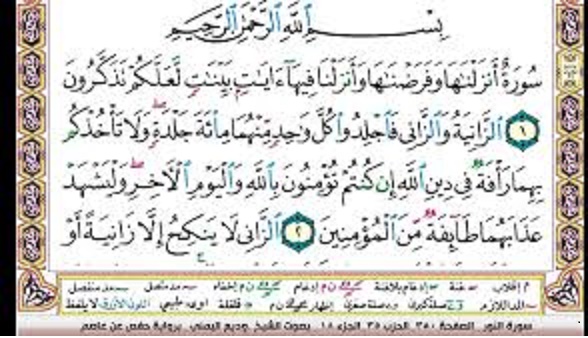 بِسْمِ ٱللَّهِ ٱلرَّحْمَٰنِ ٱلرَّحِيمِ
سُورَةٌ أَنزَلْنَٰهَا وَفَرَضْنَٰهَا وَأَنزَلْنَا فِيهَآ ءَايَٰتٍۭ بَيِّنَٰتٍ لَّعَلَّكُمْ تَذَكَّرُونَ
١ ٱلزَّانِيَةُ وَٱلزَّانِى فَٱجْلِدُوا۟ كُلَّ وَٰحِدٍ مِّنْهُمَا مِا۟ئَةَ جَلْدَةٍ ۖ وَلَا تَأْخُذْكُم
بِهِمَا رَأْفَةٌ فِى دِينِ ٱللَّهِ إِن كُنتُمْ تُؤْمِنُونَ بِٱللَّهِ وَٱلْيَوْمِ ٱلْءَاخِرِ ۖ وَلْيَشْهَدْ
عَذَابَهُمَا طَآئِفَةٌ مِّنَ ٱلْمُؤْمِنِينَ ٢ ٱلزَّانِى لَا يَنكِحُ إِلَّا زَانِيَةً أَوْ
سورة النور الصفحة ٣٥٠ الحزب ٣٥ الجزء ١٨ بصوت الشيخ وديع اليمني برواية حفص عن عاصم